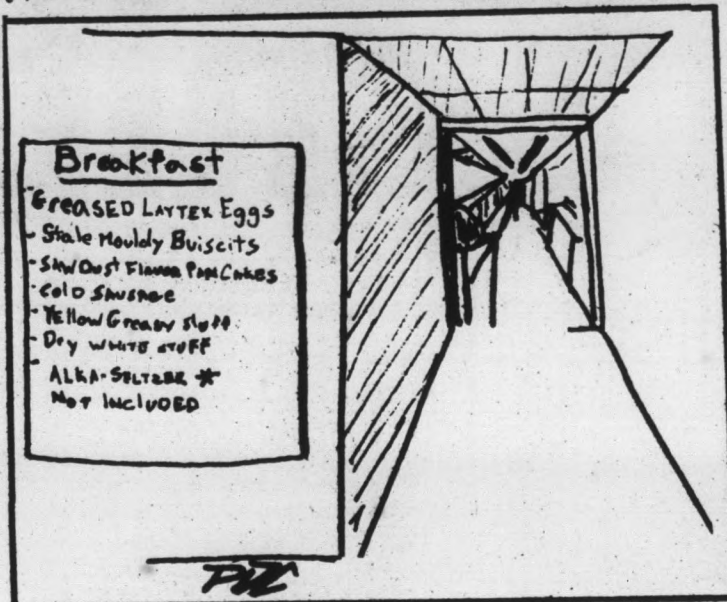 Breakfast
-GREASED LAYTEX Eggs
- Stale Mouldy Buiscits
- SAWDUST FLAVOR PANCAKES
- COLD SAUSAGE
- YELLOW Greasy stuff
- Dry WHITE STUFF
-
ALKA-SELTZER *
NOT INCLUDED